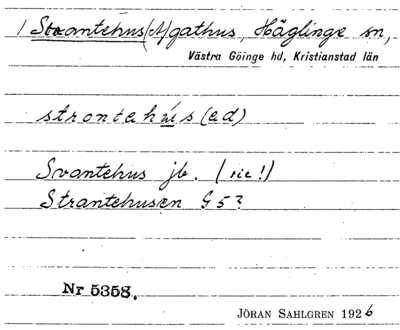 / Strantehus(A)gathus, Häglinge sn,
Västra Göinge hd, Kristianstad län
strontehús (ed)
Svantehus jb. (sic!)
Strantehusen G 5?
Nr 5358.
JÖRAN SAHLGREN 1926